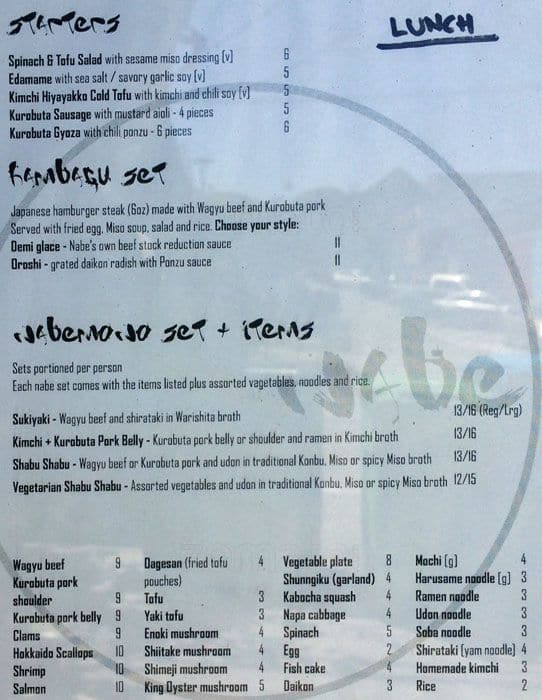 starters
LUNCH
Spinach & Tofu Salad with sesame miso dressing (v) 6
Edamame with sea salt / savory garlic soy (v) 5
Kimchi Hiyayakko Cold Tofu with kimchi and chili soy (v) 5
Kurobuta Sausage with mustard aioli - 4 pieces 5
Kurobuta Gyoza with chili ponzu - 6 pieces 6
hambagu set
Japanese hamburger steak (6oz) made with Wagyu beef and Kurobuta pork
Served with fried egg, Miso soup, salad and rice. Choose your style:
Demi glace - Nabe's own beef stock reduction sauce 11
Oroshi - grated daikon radish with Ponzu sauce 11
nabemono set + items
nabe
Sets portioned per person
Each nabe set comes with the items listed plus assorted vegetables, noodles and rice.
Sukiyaki - Wagyu beef and shirataki in Warishita broth 13/16 (Reg/Lrg)
Kimchi + Kurobuta Pork Belly - Kurobuta pork belly or shoulder and ramen in Kimchi broth 13/16
Shabu Shabu - Wagyu beef or Kurobuta pork and udon in traditional Konbu, Miso or spicy Miso broth 13/16
Vegetarian Shabu Shabu - Assorted vegetables and udon in traditional Konbu, Miso or spicy Miso broth 12/15
Wagyu beef 9
Kurobuta pork
shoulder 9
Kurobuta pork belly 9
Clams 9
Hokkaido Scallops 10
Shrimp 10
Salmon 10
Dagesan (fried tofu 4
pouches)
Tofu 3
Yaki tofu 3
Enoki mushroom 4
Shiitake mushroom 4
Shimeji mushroom 4
King Oyster mushroom 5
Vegetable plate 8
Shunngiku (garland) 4
Kabocha squash 4
Napa cabbage 4
Spinach 5
Egg 2
Fish cake 4
Daikon 3
Mochi (g) 4
Harusame noodle (g) 3
Ramen noodle 3
Udon noodle 3
Soba noodle 3
Shirataki (yam noodle) 4
Homemade kimchi 3
Rice 2